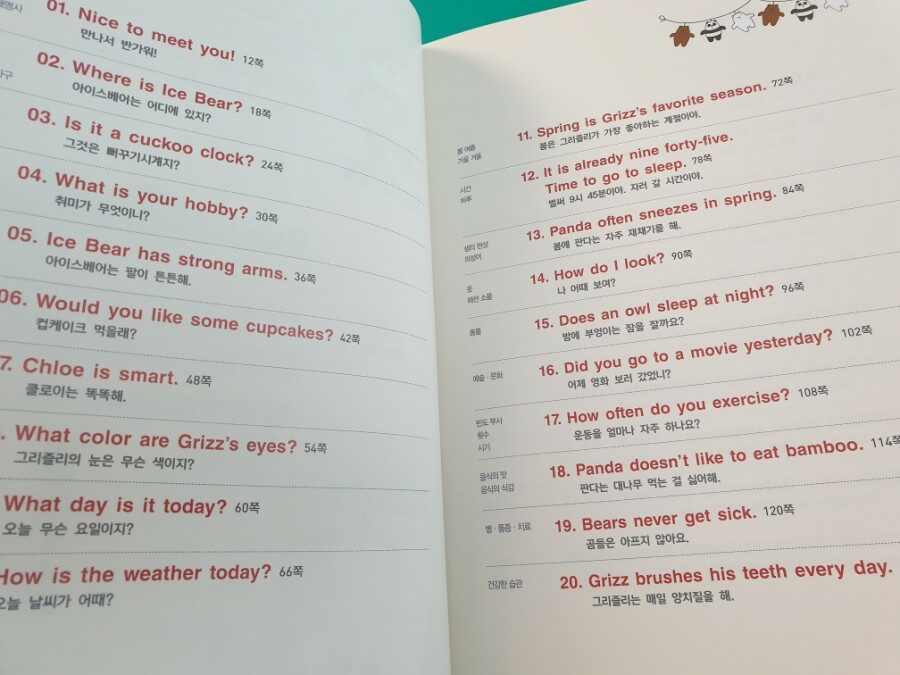 01. Nice to meet you! 12쪽
만나서 반가워!
02. Where is Ice Bear? 18쪽
아이스베어는 어디에 있지?
03. Is it a cuckoo clock? 24쪽
그것은 뻐꾸기시계지?
04. What is your hobby? 30쪽
취미가 무엇이니?
05. Ice Bear has strong arms. 36쪽
아이스베어는 팔이 튼튼해.
06. Would you like some cupcakes? 42쪽
컵케이크 먹을래?
7. Chloe is smart. 48쪽
클로이는 똑똑해.
What color are Grizz's eyes? 54쪽
그리즐리의 눈은 무슨 색이지?
What day is it today? 60쪽
오늘 무슨 요일이지?
How is the weather today? 66쪽
오늘 날씨가 어때?
봄 여름
가을 겨울
11. Spring is Grizz's favorite season. 72쪽
봄은 그리즐리가 가장 좋아하는 계절이야.
시간
하루
12. It is already nine forty-five.
Time to go to sleep. 78쪽
벌써 9시 45분이야. 자러 갈 시간이야.
생리 현상
의성어
13. Panda often sneezes in spring. 84쪽
봄에 판다는 자주 재채기를 해.
옷
패션 소품
14. How do I look? 90쪽
나 어때 보여?
동물
15. Does an owl sleep at night? 96쪽
밤에 부엉이는 잠을 잘까요?
예술 · 문화
16. Did you go to a movie yesterday? 102쪽
어제 영화 보러 갔었니?
빈도 부사
횟수
시기
17. How often do you exercise? 108쪽
운동을 얼마나 자주 하나요?
음식의 맛
음식의 식감
18. Panda doesn't like to eat bamboo. 114쪽
판다는 대나무 먹는 걸 싫어해.
병 · 통증 · 치료
19. Bears never get sick. 120쪽
곰들은 아프지 않아요.
건강한 습관
20. Grizz brushes his teeth every day.
그리즐리는 매일 양치질을 해.